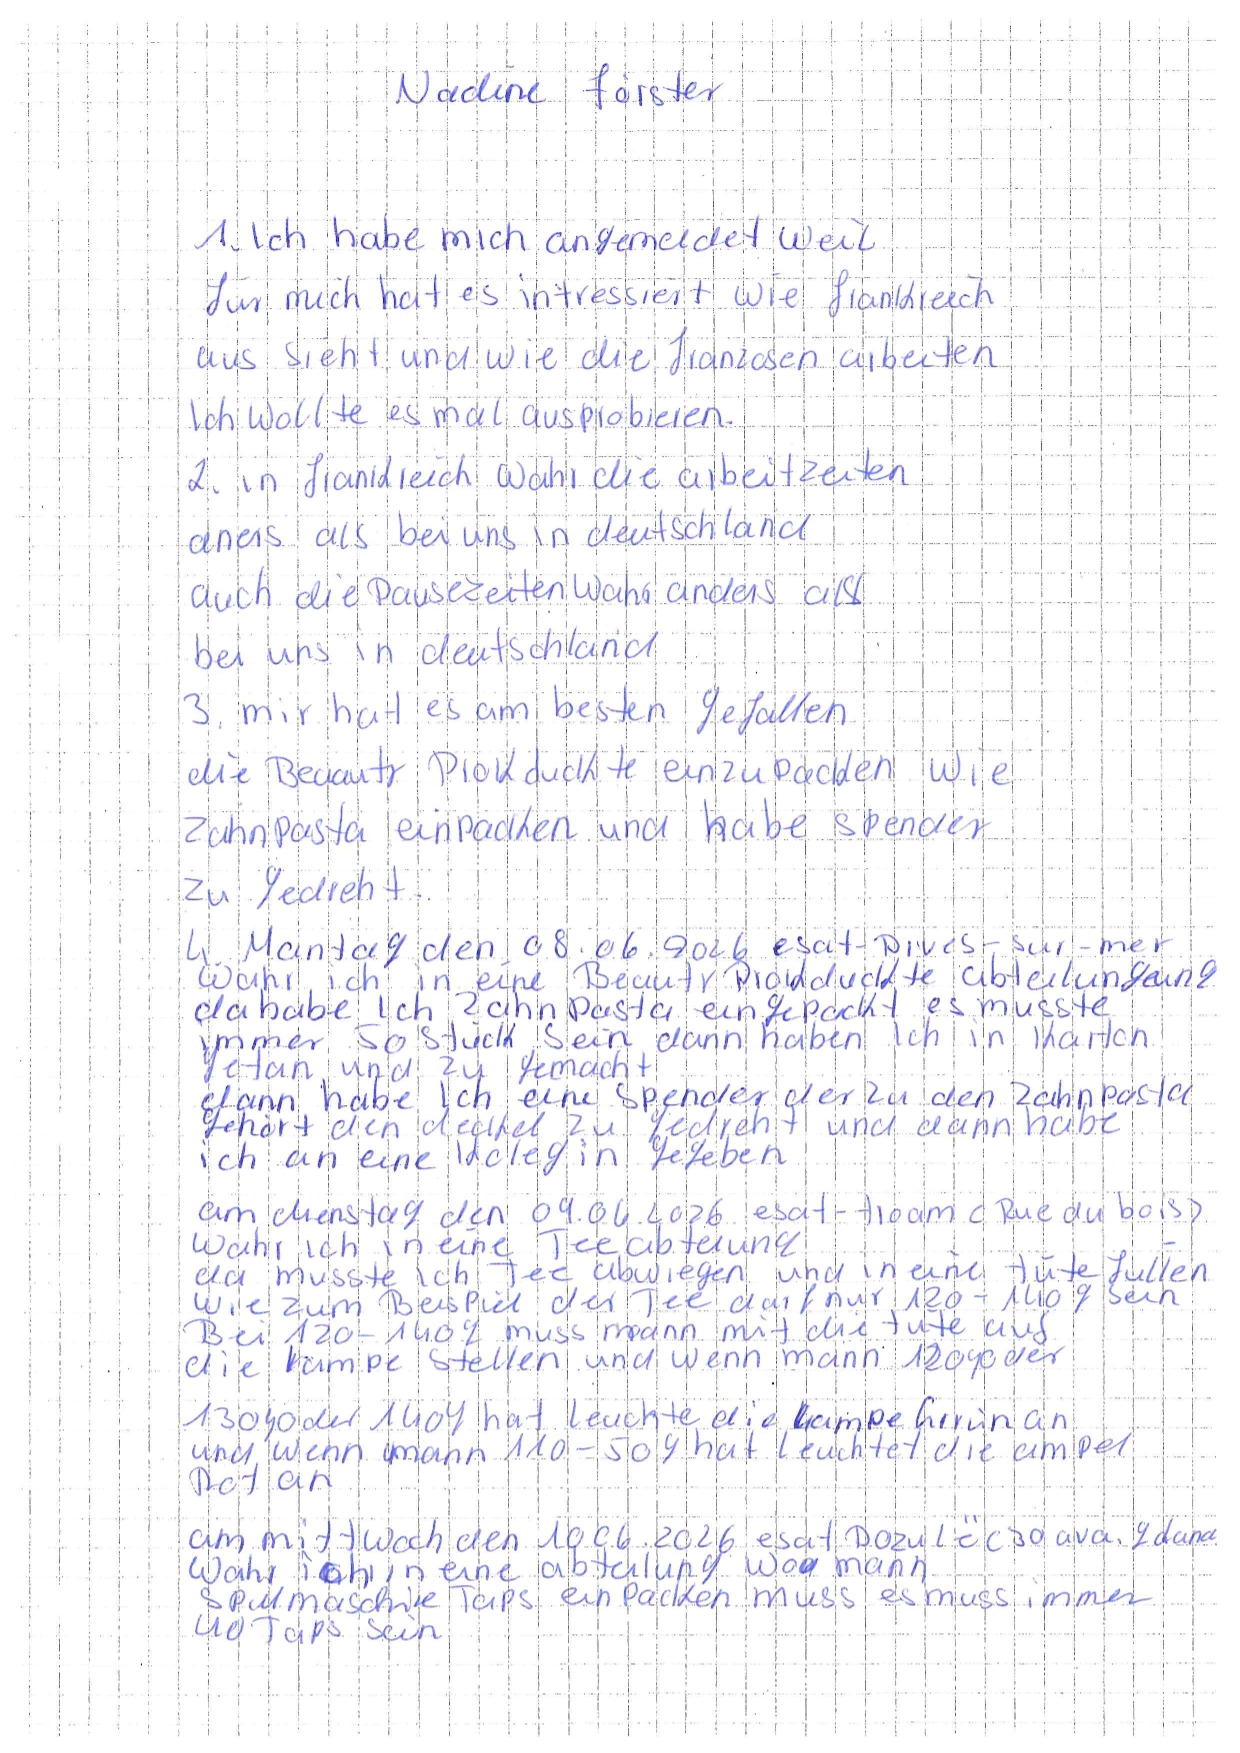 Nadine förster
1. Ich habe mich angemeldet weil
für mich hat es intressiert wie frankreich
aus sieht und wie die franzosen arbeiten
Ich wollte es mal ausprobieren.
2. in frankreich wahr die arbeitzeiten
aners als bei uns in deutschland
auch die Pausezeiten wahr anders als
bei uns in deutschland
3. mir hat es am besten gefallen
die Beuauty Prokduckte einzupacken wie
Zahnpasta einpacken und habe spender
zu gedreht.
4. Mantag den 08.06.2026 esat-Dives-sur-mer
wahr ich in eine Beauty Prokduckte abteilungeung
da habe Ich Zahnpasta eingepackt es musste
immer 50 Stück sein dann haben Ich in Karton
getan und zu gemacht
dann habe Ich eine Spender der zu den Zahnpasta
gehört den deckel zu gedreht und dann habe
ich an eine Koleg in gegeben
am dienstag den 09.06.2026 esat-troam (Rue du bois)
wahr ich in eine Tee abteiung
da musste ich Tee abwiegen und in eine tüte füllen
wie zum Beispiel der Tee darf nur 120-140g sein
Bei 120-140g muss mann mit die tüte auf
die kampe stellen und wenn mann 120g oder
130g oder 140g hat leuchte die kampe Grün an
und wenn mann 110-50g hat leuchtet die ampel
Rot an
am mittwoch den 10.06.2026 esat Dozulé
wahr ich in eine abteilung woa mann
Spulmaschie Taps einpacken muss es muss immer
40 Taps sein